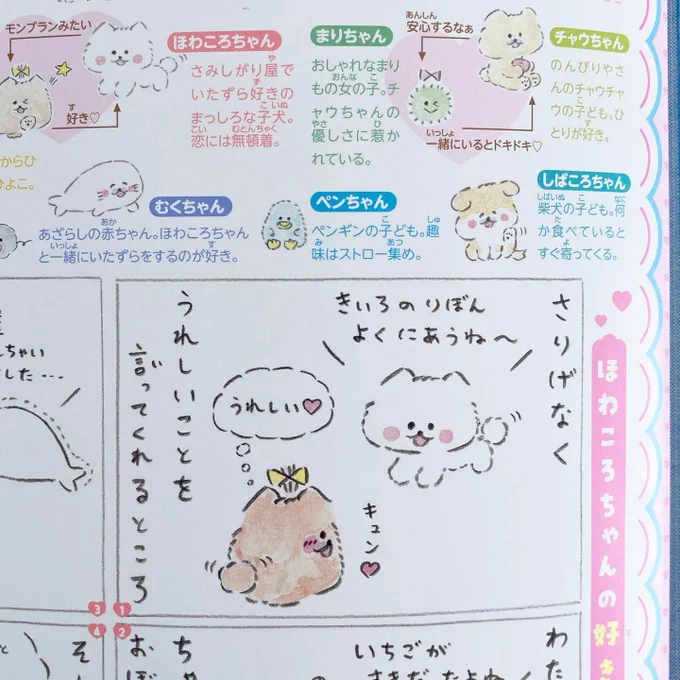 モンブランみたい
好き♡
ほわころちゃん
さみしがり屋で
いたずら好きの
まっしろな子犬。
恋には無頓着。
まりちゃん
おしゃれなまり
もの女の子。チ
ャウちゃんの
優しさに惹か
れている。
安心するなぁ
一緒にいるとドキドキ♡
チャウちゃん
のんびりやさ
んのチャウチャ
ウの子ども。ひ
とりが好き。
からひ
よこ。
むくちゃん
あざらしの赤ちゃん。ほわころちゃん
と一緒にいたずらをするのが好き。
ペンちゃん
ペンギンの子ども。趣
味はストロー集め。
しばころちゃん
柴犬の子ども。何
か食べていると
すぐ寄ってくる。
ほわころちゃんの好き
さりげなく
うれしいことを
言ってくれるところ
きいろのりぼん
よくにあうね〜
うれしい♥
キュン♥
1
3
ちゃい
した…
2
4
わた
いちごが
ちゃ
おぼ
そ